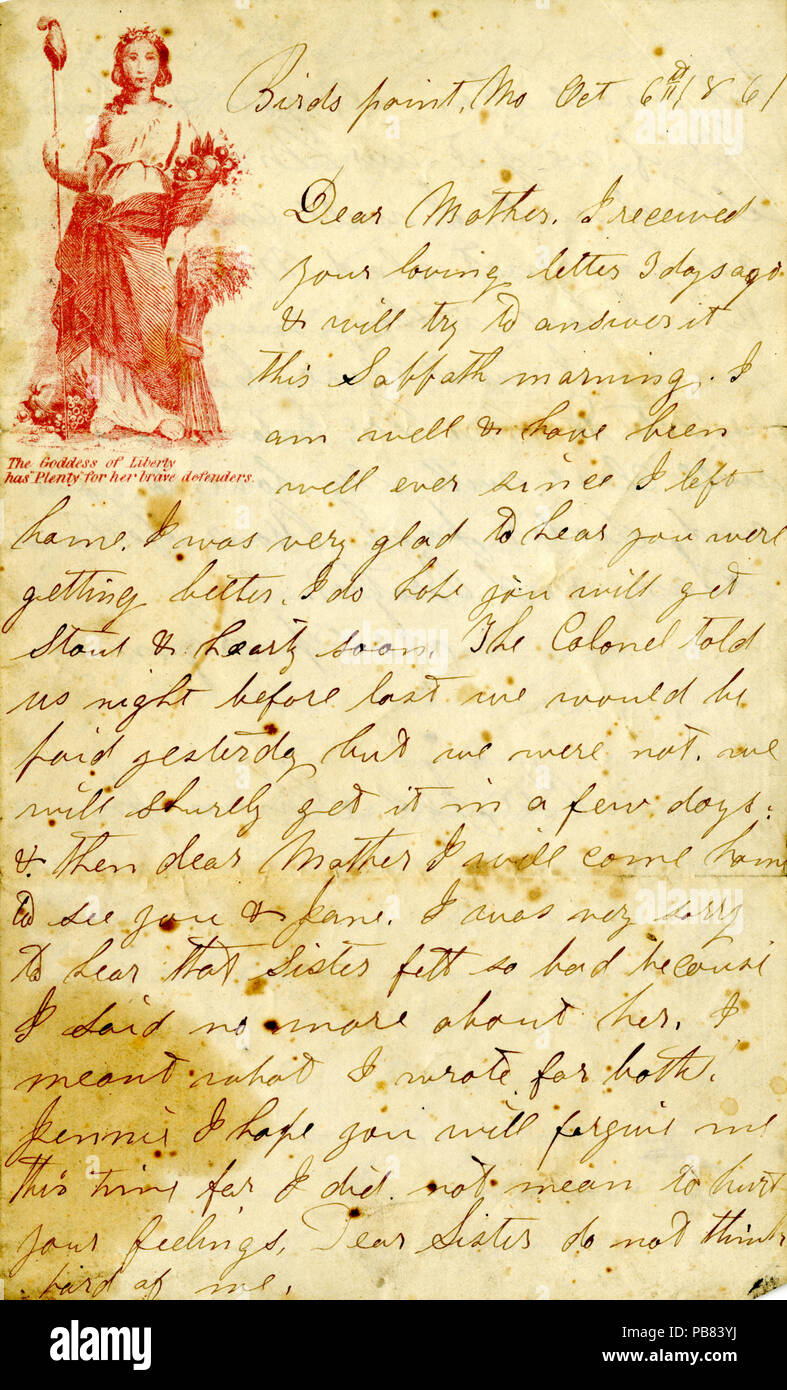 Birds point, Mo Oct 6th 1861
Dear Mother. I received
your loving letter 3 days ago
& will try to answer it
this Sabbath morning. I
am well & have been
The Goddess of Liberty
has "Plenty" for her brave defenders.
well ever since I left
home. I was very glad to hear you were
getting better. I do hope you will get
stout & hearty soon. The Colonel told
us night before last we would be
paid yesterday but we were not. we
will shurely get it in a few days.
& then dear Mother I will come home
to see you & Jane. I was very sorry
to hear that Sister felt so bad because
I said no more about her. I
meant what I wrote for both.
Jennie I hope you will forgive me
this time for I did not mean to hurt
your feelings. Dear Sister do not think
hard of me.
alamy
Image ID: PB83YJ
www.alamy.com